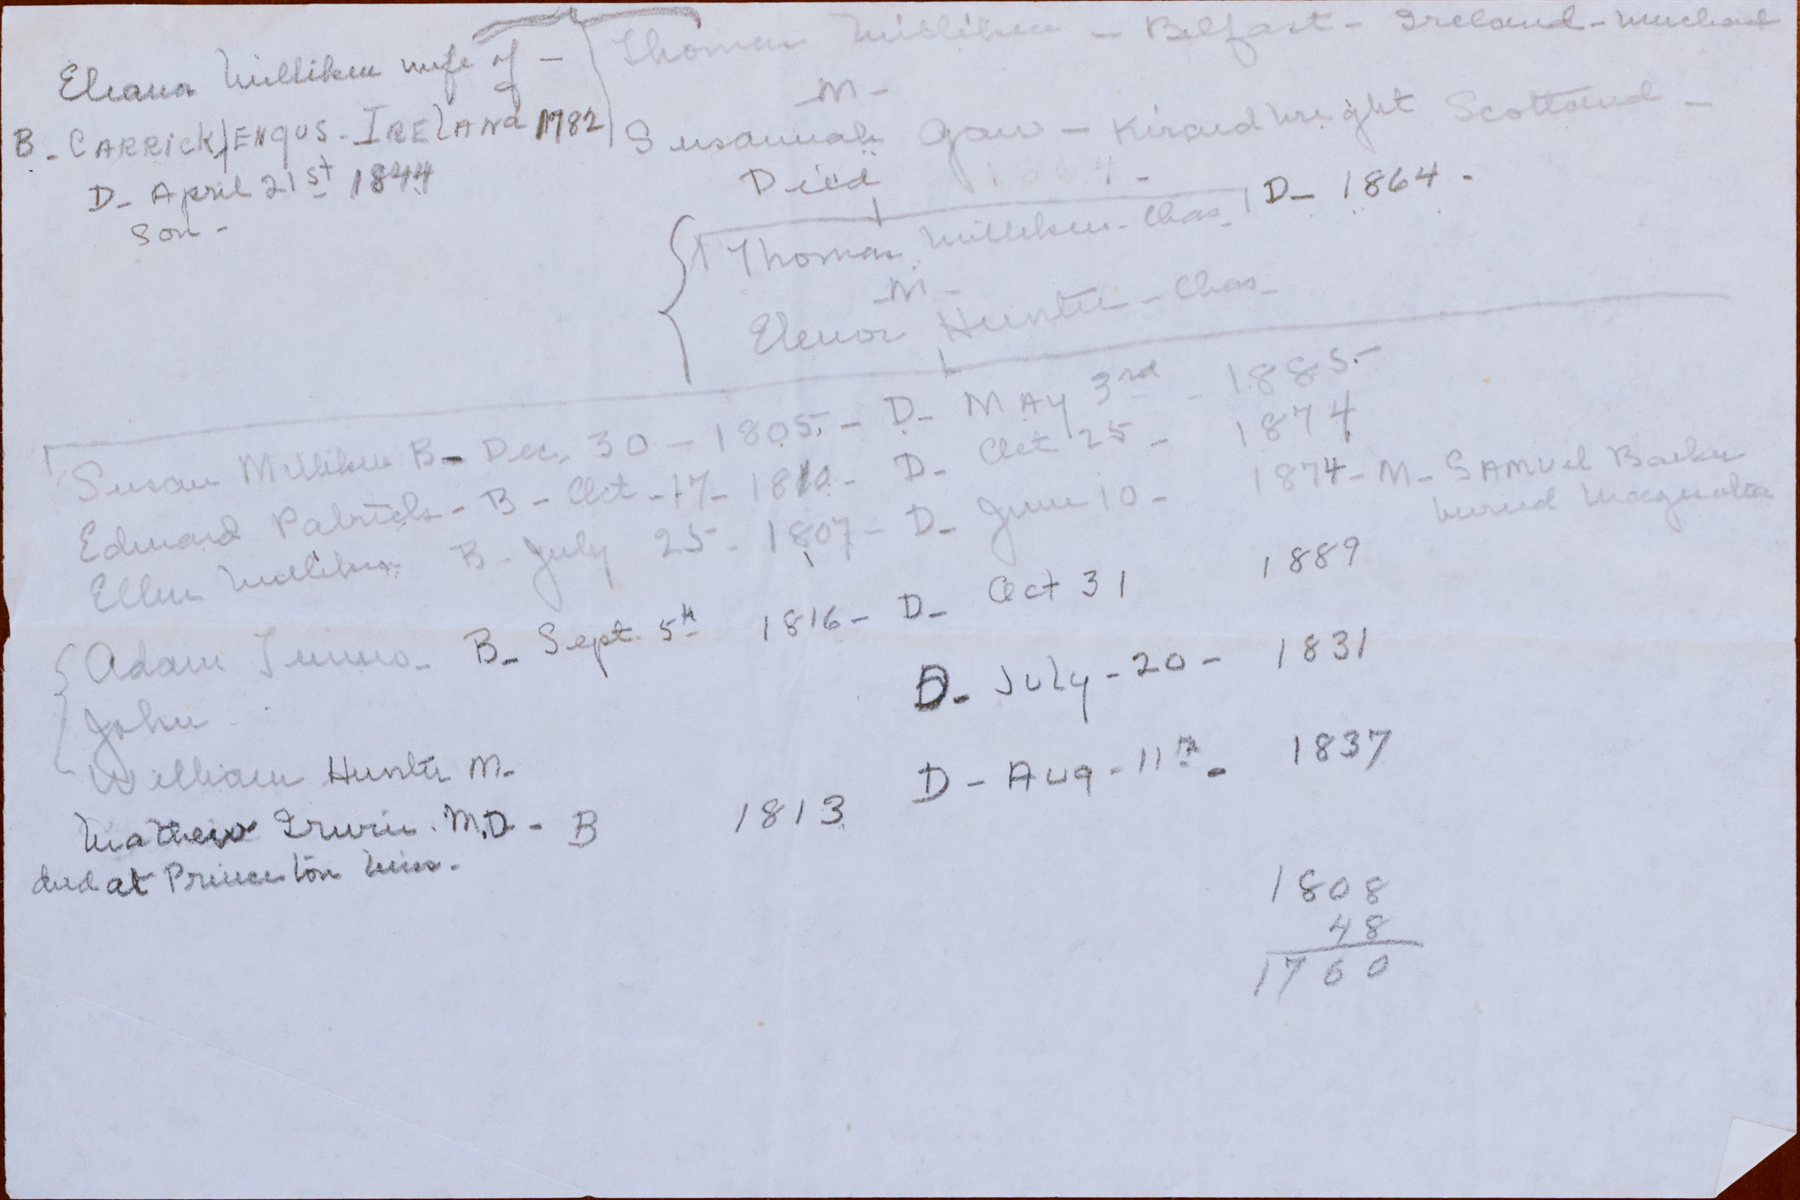 Thomas Milliken - Belfast - Ireland - Merchant
Eleana Milliken wife of -
M -
B - CARRICKFERGUS - IRELAND 1782
Susannah Gaw - Kircudbright Scotland -
D - April 21st 1844
Died 1864 -
Son -
Thomas Milliken - Chas D - 1864 -
- M -
Elenor Hunter - Chas -
Susan Milliken B - Dec. 30 - 1805 - D - MAY 3rd - 1885 -
Edward Patrick - B - Oct - 17 - 1810 - D - Oct 25 - 1874
Ellen Milliken B - July 25 - 1807 - D - June 10 - 1874 - M - SAMUEL Barker
buried Magnolia
Adam Tunno - B - Sept. 5th 1816 - D - Oct 31 1889
John - D - July - 20 - 1831
William Hunter M - D - Aug - 11th - 1837
Mathew Irvin. M.D - B 1813
died at Princeton Miss -
1808
48
1760